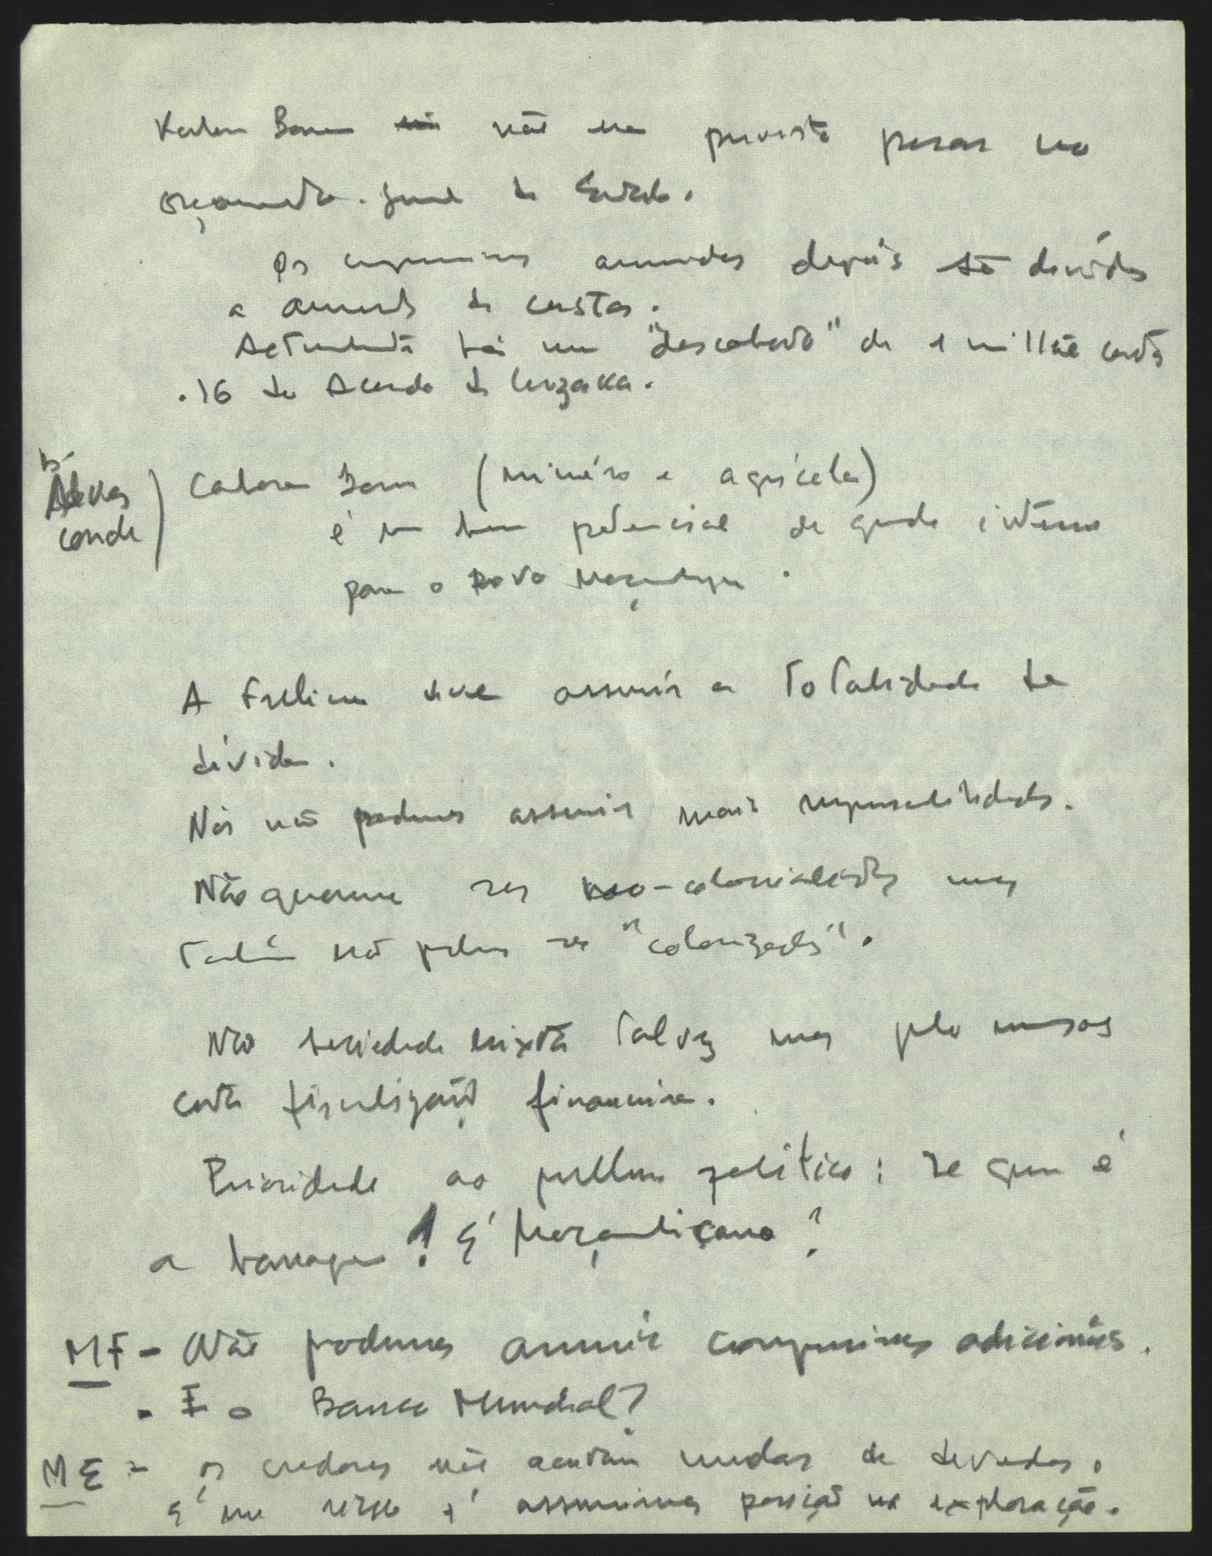 Bassa não era previsto pesar no
orçamento geral do Estado.
Os assumidos depois são devidos
a aumento de custos.
Actualmente há um "descoberto" de 1 milhão
.16 do Acordo de Lusaka.
Almas
conde
Cabora Bassa (mineiro e agrícola)
é um bem potencial de grande interesse
para o Povo Moçambique.
A Frelimo deve assumir a totalidade da
dívida.
Nós não podemos assumir mais responsabilidades.
Não queremos ser neo-colonialistas mas
também não podemos ser "colonizados".
Não sociedade mixta talvez mas pelo menos
certa fiscalização financeira.
Prioridade ao problema político: de quem é
a barragem! É Moçambicana?
MF - Não podemos assumir compromissos adicionais.
. E o Banco Mundial?
ME - Os credores não aceitam mudar de devedor.
É um risco assumirmos posição na exploração.